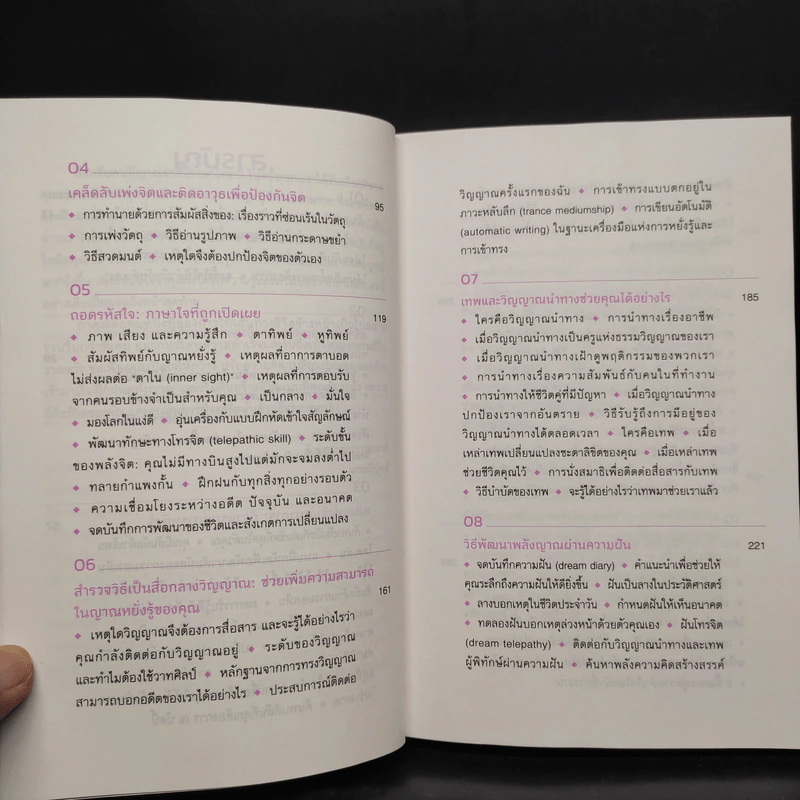 04
เคล็ดลับเพ่งจิตและติดอาวุธเพื่อป้องกันจิต 95
◆ การทำนายด้วยการสัมผัสสิ่งของ: เรื่องราวที่ซ่อนเร้นในวัตถุ
◆ การเพ่งวัตถุ ◆ วิธีอ่านรูปภาพ ◆ วิธีอ่านกระดาษขยำ
◆ วิธีสวดมนต์ ◆ เหตุใดจึงต้องปกป้องจิตของตัวเอง
05
ถอดรหัสใจ: ภาษาใจที่ถูกเปิดเผย 119
◆ ภาพ เสียง และความรู้สึก ◆ ตาทิพย์ ◆ หูทิพย์
◆ สัมผัสทิพย์กับญาณหยั่งรู้ ◆ เหตุผลที่อาการตาบอด
ไม่ส่งผลต่อ "ตาใน (inner sight)" ◆ เหตุผลที่การตอบรับ
จากคนรอบข้างจำเป็นสำหรับคุณ ◆ เป็นกลาง ◆ มั่นใจ
◆ มองโลกในแง่ดี ◆ อุ่นเครื่องกับแบบฝึกหัดเข้าใจสัญลักษณ์
◆ พัฒนาทักษะทางโทรจิต (telepathic skill) ◆ ระดับขั้น
ของพลังจิต: คุณไม่มีทางบินสูงไปแต่มักจะจมลงต่ำไป
◆ ทลายกำแพงกั้น ◆ ฝึกฝนกับทุกสิ่งทุกอย่างรอบตัว
◆ ความเชื่อมโยงระหว่างอดีต ปัจจุบัน และอนาคต
◆ จดบันทึกการพัฒนาของชีวิตและสังเกตการเปลี่ยนแปลง
06
สำรวจวิธีเป็นสื่อกลางวิญญาณ: ช่วยเพิ่มความสามารถ
ในญาณหยั่งรู้ของคุณ 161
◆ เหตุใดวิญญาณจึงต้องการสื่อสาร และจะรู้ได้อย่างไรว่า
คุณกำลังติดต่อกับวิญญาณอยู่ ◆ ระดับของวิญญาณ
และทำไมต้องใช้วาทศิลป์ ◆ หลักฐานจากการทรงวิญญาณ
สามารถบอกอดีตของเราได้อย่างไร ◆ ประสบการณ์ติดต่อ
วิญญาณครั้งแรกของฉัน ◆ การเข้าทรงแบบตกอยู่ใน
ภาวะหลับลึก (trance mediumship) ◆ การเขียนอัตโนมัติ
(automatic writing) ในฐานะเครื่องมือแห่งการหยั่งรู้และ
การเข้าทรง
07
เทพและวิญญาณนำทางช่วยคุณได้อย่างไร 185
◆ ใครคือวิญญาณนำทาง ◆ การนำทางเรื่องอาชีพ
◆ เมื่อวิญญาณนำทางเป็นครูแห่งธรรมวิญญาณของเรา
◆ เมื่อวิญญาณนำทางเฝ้าดูพฤติกรรมของพวกเรา
◆ การนำทางเรื่องความสัมพันธ์กับคนในที่ทำงาน
◆ การนำทางให้ชีวิตคู่ที่มีปัญหา ◆ เมื่อวิญญาณนำทาง
ปกป้องเราจากอันตราย ◆ วิธีรับรู้ถึงการมีอยู่ของ
วิญญาณนำทางได้ตลอดเวลา ◆ ใครคือเทพ ◆ เมื่อ
เหล่าเทพเปลี่ยนแปลงชะตาลิขิตของคุณ ◆ เมื่อเหล่าเทพ
ช่วยชีวิตคุณไว้ ◆ การนั่งสมาธิเพื่อติดต่อสื่อสารกับเทพ
◆ วิธีบำบัดของเทพ ◆ จะรู้ได้อย่างไรว่าเทพมาช่วยเราแล้ว
08
วิธีพัฒนาพลังญาณผ่านความฝัน 221
◆ จดบันทึกความฝัน (dream diary) ◆ คำแนะนำเพื่อช่วยให้
คุณระลึกถึงความฝันให้ดียิ่งขึ้น ◆ ฝันเป็นลางในประวัติศาสตร์
◆ ลางบอกเหตุในชีวิตประจำวัน ◆ กำหนดฝันให้เห็นอนาคต
◆ ทดลองฝันบอกเหตุล่วงหน้าด้วยตัวคุณเอง ◆ ฝันโทรจิต
(dream telepathy) ◆ ติดต่อกับวิญญาณนำทางและเทพ
ผู้พิทักษ์ผ่านความฝัน ◆ ค้นหาพลังความคิดสร้างสรรค์